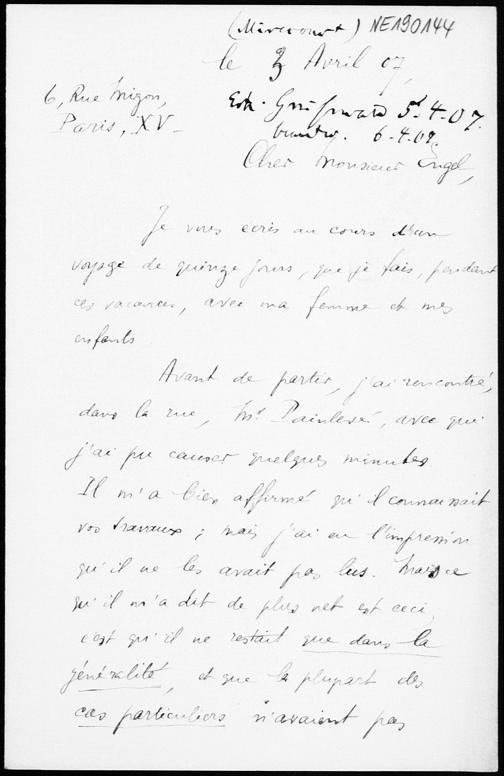 (Mirecourt) NE190144
le 3 Avril 07,
6, Rue Mizon,
Paris, XV_
5.4.07.
6-4.07.
Cher Monsieur Engel,
Je vous écris au cours d'un
voyage de quinze jours, que je fais, pendant
ces vacances, avec ma femme et mes
enfants
Avant de partir, j'ai rencontré,
dans la rue, Mr Painlevé, avec qui
j'ai pu causer quelques minutes
Il m'a bien affirmé qu'il connaissait
vos travaux ; mais j'ai eu l'impression
qu'il ne les avait pas lus. Mais ce
qu'il m'a dit de plus net est ceci,
c'est qu'il ne restait que dans la
généralité, et que la plupart des
cas particuliers n'avaient pas